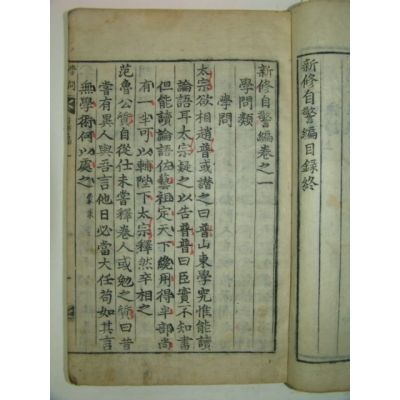 新修自警編目錄終
新修自警編卷之一
學問類
學問
太宗欲相趙普或譖之曰普山東學究惟能讀
論語耳太宗疑之以告普普曰臣實不知書
但能讀論語佐藝祖定天下纔用得半部尚
有一半可以輔陛下太宗釋然卒相之
范魯公質自從仕未嘗釋卷人或勉之質曰昔
嘗有異人與吾言他日必當大任苟如其言
無學術何以處之